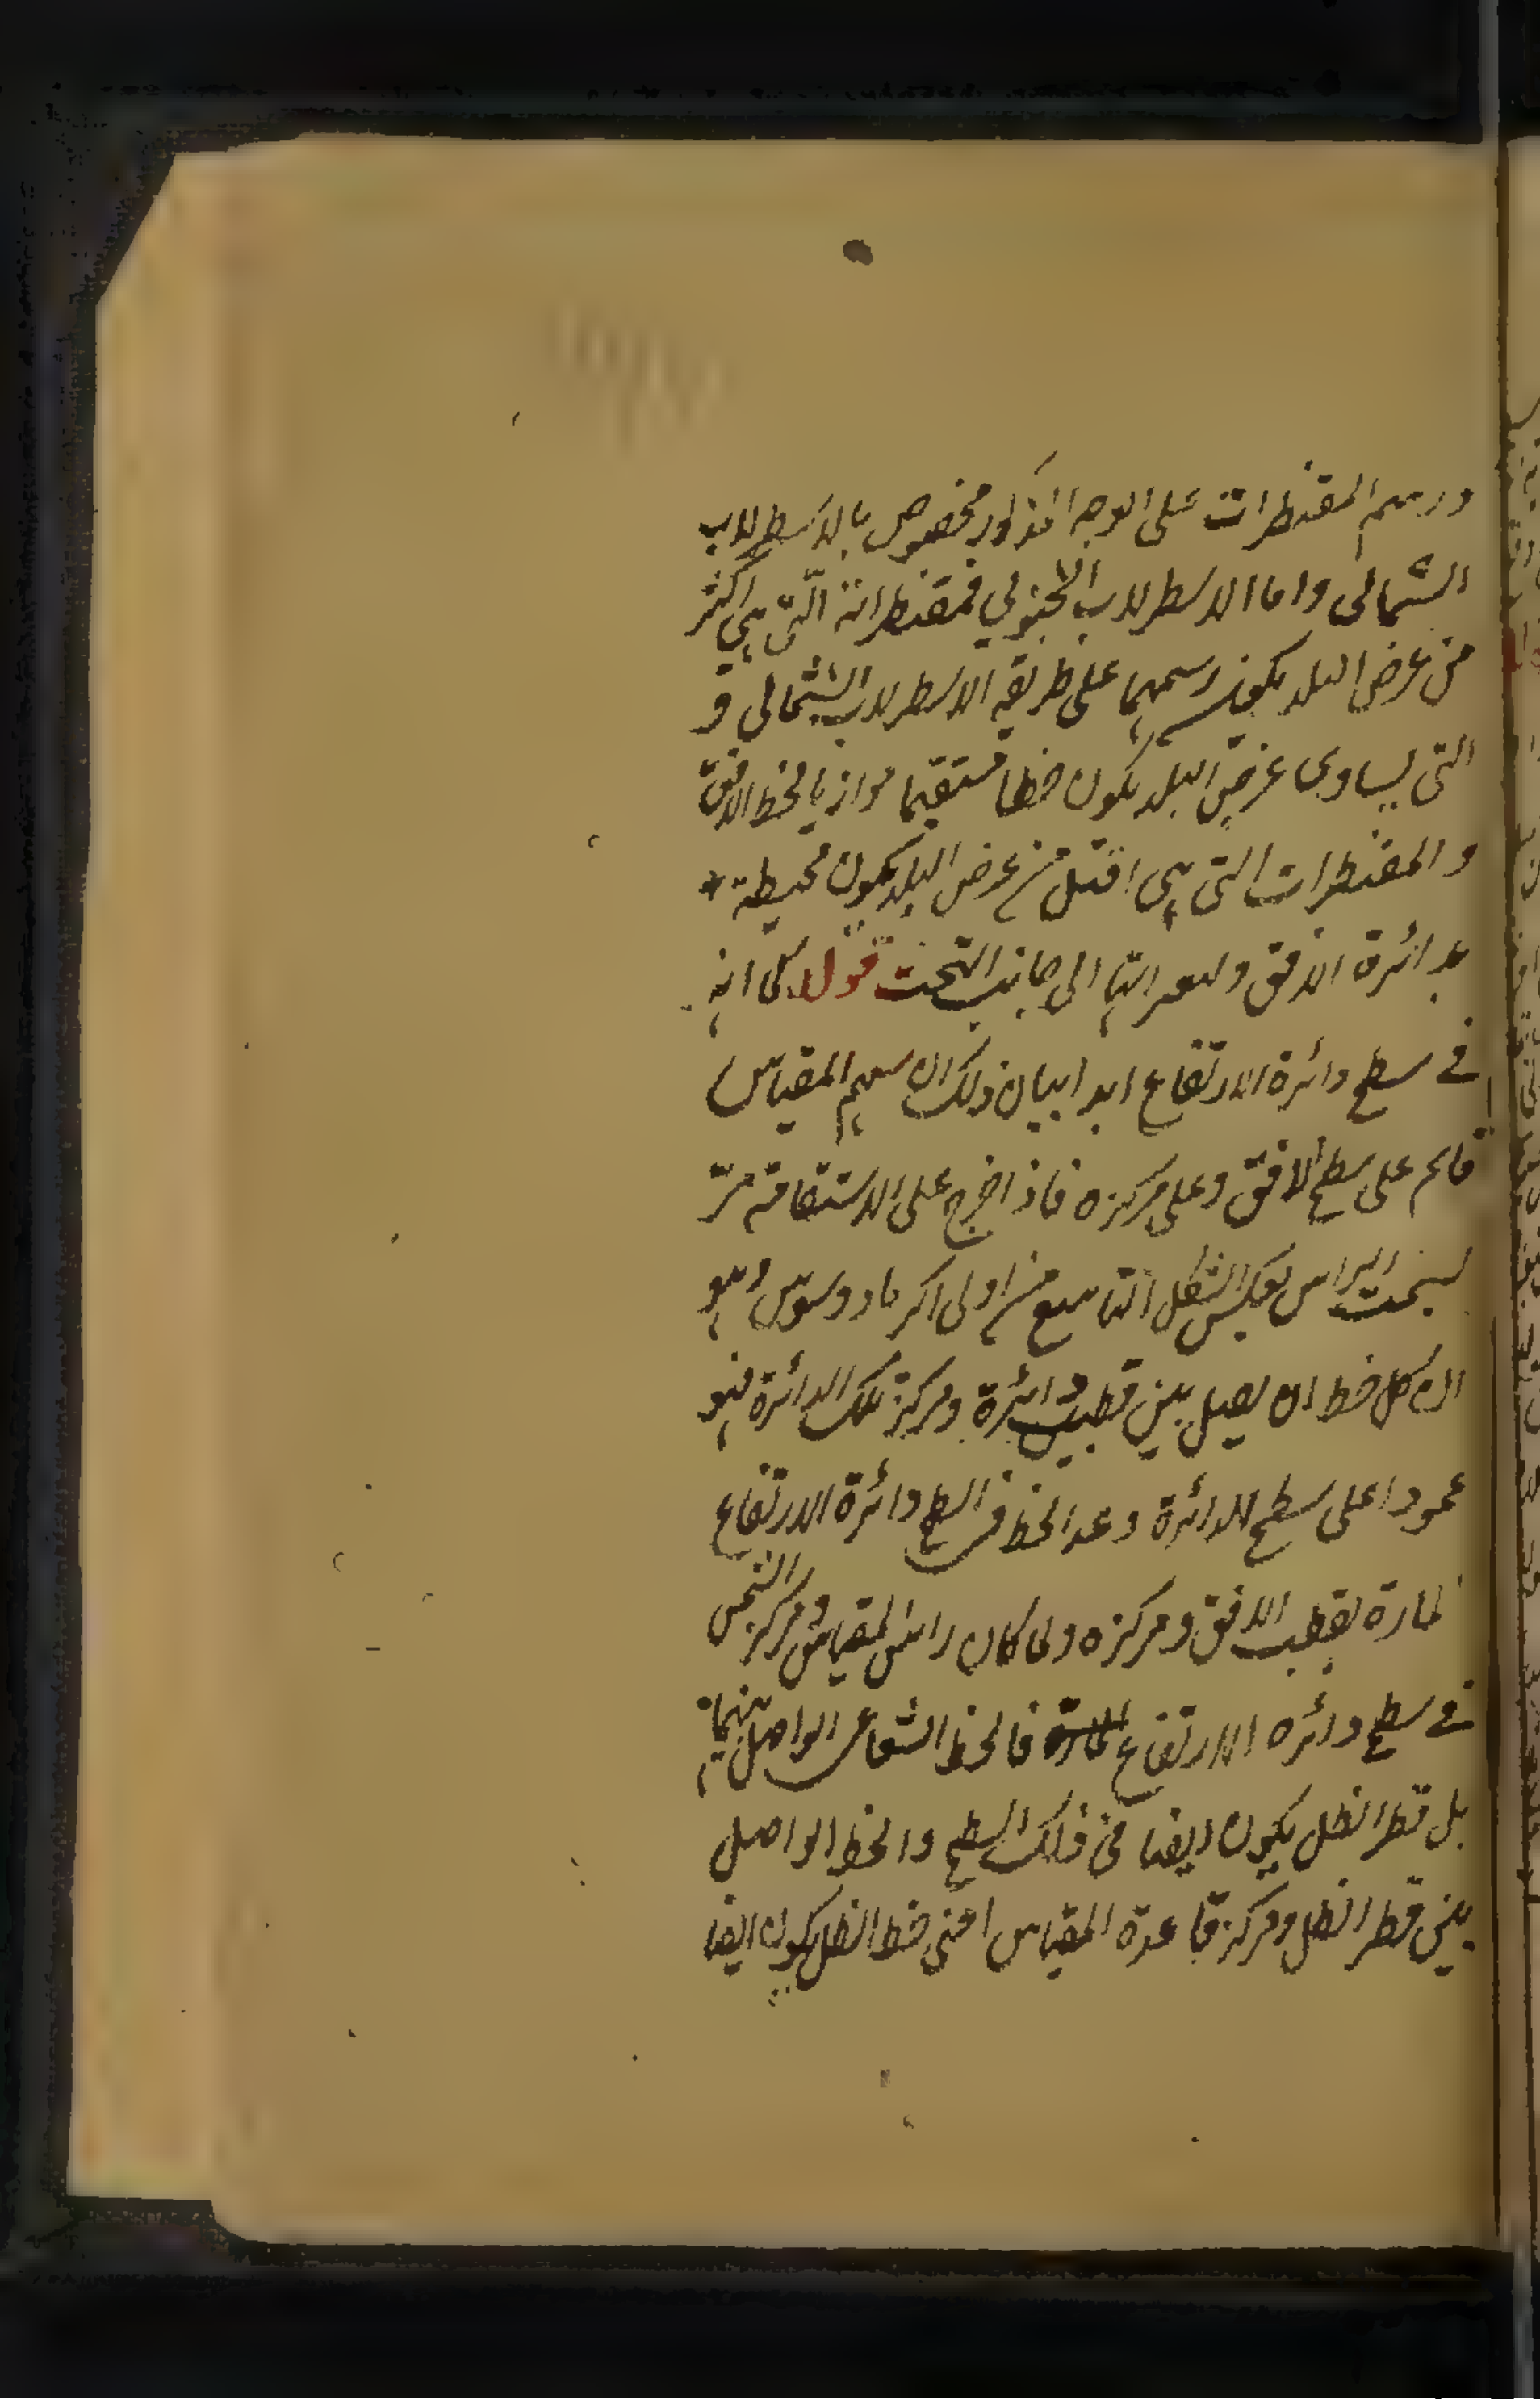 ورسم المقنطرات على الوجه المذكور مخصوص بالاسطرلاب
الشمالى واما الاسطرلاب الجنوبي فمقنطراته التى هي اكثر
من عرض البلد يكون رسمها على طريقه الاسطرلاب الشمالى و
التى يساوى عرض البلد يكون خطا مستقيما موازيا لخط الافق
والمقنطرات التى هى اقل من عرض البلد يكون محيطة *
بدائرة الافق الى جانب التحت قوله على انه
فى سطح دائرة الارتفاع ابدا بيان ذلك ان سهم المقياس
قائم على سطح الافق وعلى مركزه فاذا اخرج على الاستقامة مر
بسمت الراس بعكس الشكل التاسع من اولى اكر ثاودوسيوس وهو
ان كل خط ان يصل بين قطبى دائرة ومركز تلك الدائرة فهو
عمودا على سطح الدائرة وهذا الخط فى سطح دائرة الارتفاع
المارة بقطب الافق ومركزه ولما كان راس المقياس ومركز الشمس
فى سطح دائره الارتفاع فالخط الشعاعى الواصل بينهما
بل قطر الظل يكون ايضا فى ذلك السطح والخط الواصل
بين قطر الظل ومركز قاعدة المقياس اعنى خط الظل يكون ايضا